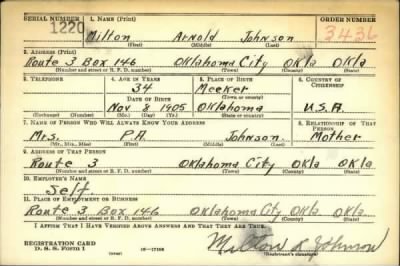 SERIAL NUMBER 1. NAME (Print) ORDER NUMBER
1220 Milton Arnold Johnson 3436
(First) (Middle) (Last)
2. ADDRESS (Print)
Route 3 Box 146 Oklahoma City Okla Okla
(Number and street or R. F. D. number) (Town) (County) (State)
3. TELEPHONE 4. AGE IN YEARS 5. PLACE OF BIRTH 6. COUNTRY OF CITIZENSHIP
34 Meeker
DATE OF BIRTH (Town or county)
Nov 8 1905 Oklahoma U.S.A.
(Exchange) (Number) (Mo.) (Day) (Yr.) (State or country)
7. NAME OF PERSON WHO WILL ALWAYS KNOW YOUR ADDRESS 8. RELATIONSHIP OF THAT PERSON
Mrs. P.A. Johnson Mother
(Mr., Mrs., Miss) (First) (Middle) (Last)
9. ADDRESS OF THAT PERSON
Route 3 Oklahoma City Okla Okla
(Number and street or R. F. D. number) (Town) (County) (State)
10. EMPLOYER'S NAME
Self
11. PLACE OF EMPLOYMENT OR BUSINESS
Route 3 Box 146 Oklahoma City Okla Okla
(Number and street or R. F. D. number) (Town) (County) (State)
I AFFIRM THAT I HAVE VERIFIED ABOVE ANSWERS AND THAT THEY ARE TRUE.
REGISTRATION CARD
D. S. S. Form 1 (over) 16—17105 Milton A Johnson
(Registrant's signature)